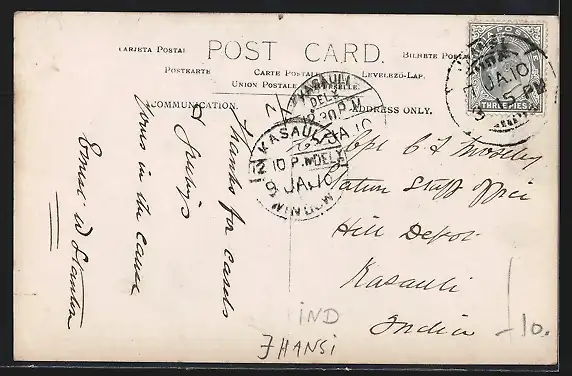 TARJETA POSTAL
POST CARD.
BILHETE POSTAL
POSTKARTE
CARTE POSTALE
LEVELEZÖ-LAP.
UNION POSTALE UNIVERSELLE.
COMMUNICATION.
ADDRESS ONLY.
THREE PIES
JA.10
KASAULI
DELY
JA.10
KASAULI
12 10 P.M DELY
9 JA.10
WINDOW
Thanks for cards
& greetings
yours in the cause
Capt C F Mosley
Station Staff Office
Hill Depot
Kasauli
India
IND
JHANSI
10.